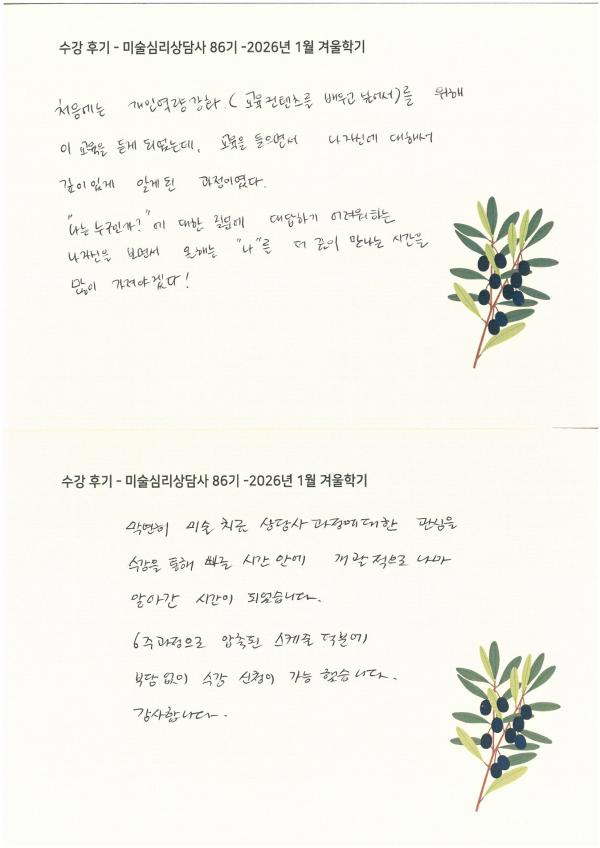 수강 후기 - 미술심리상담사 86기 -2026년 1월 겨울학기
처음에는 개인역량강화.(교육컨텐츠를 배우고 싶어서)를 위해
이 교육을 듣게 되었는데, 교육을 들으면서 나자신에 대해서
깊이있게 알게된 과정이였다.
"나는 누구인가?"에 대한 질문에 대답하기 어려워하는
나자신을 보면서 올해는 "나"를 더 깊이 만나는 시간을
많이 가져야겠다!
수강 후기 - 미술심리상담사 86기 -2026년 1월 겨울학기
막연히 미술 치료 상담사 과정에대한 관심을
수강을 통해 빠른 시간 안에 개괄적으로 나마
알아간 시간이 되었습니다.
6주과정으로 압축된 스케줄 덕분에
부담없이 수강 신청이 가능 했습니다.
감사합니다.